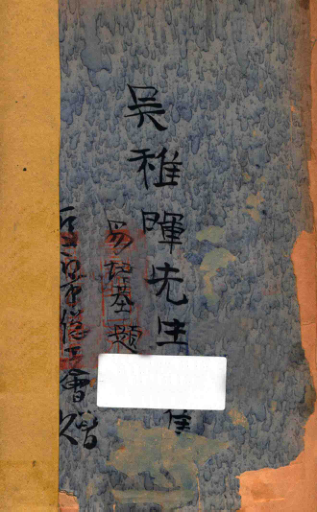 吴稚暉先生
集
易培基題
市總工會